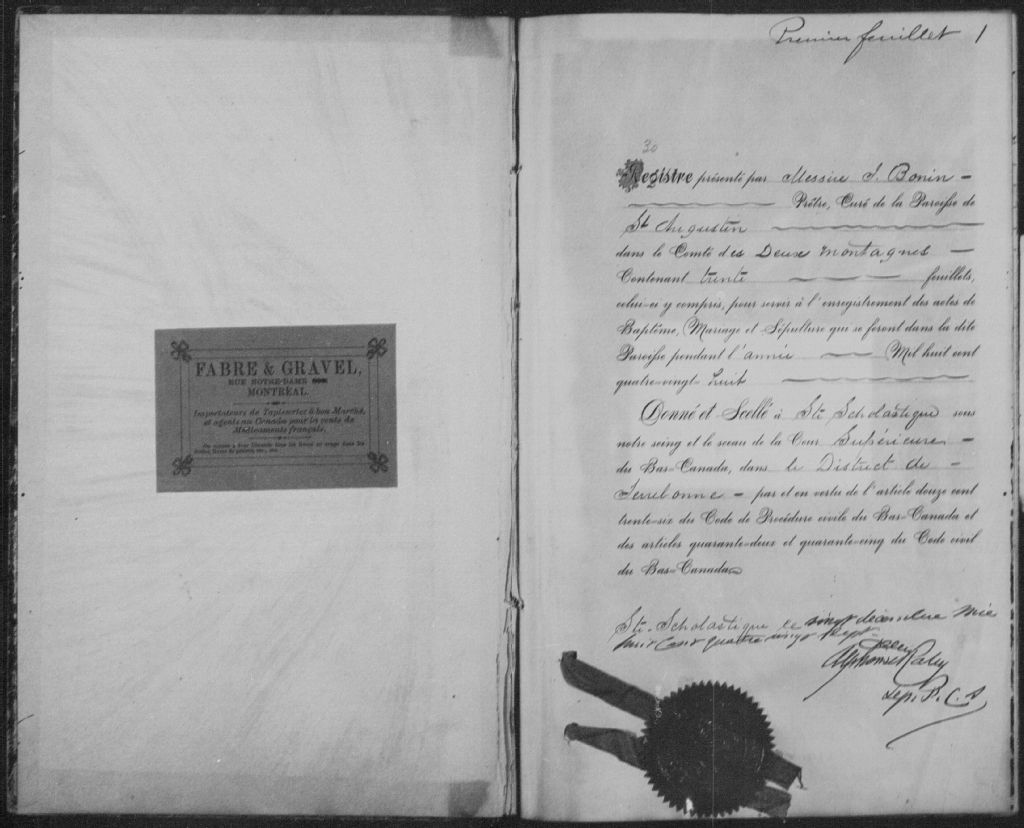 FABRE & GRAVEL,
RUE NOTRE-DAME
MONTRÉAL.
Importateurs de Tapisseries à bon Marché,
et agents au Canada pour la vente de
Médicaments français.
Premier feuillet 1
30
Registre présenté par Messire J. Bonin
Prêtre, Curé de la Paroisse de
St Augustin
dans le Comté des Deux Montagnes
Contenant trente feuillets,
celui-ci y compris, pour servir à l'enregistrement des actes de
Baptême, Mariage et Sépulture qui se feront dans la dite
Paroisse pendant l'année Mil huit cent
quatre-vingt huit
Donné et Scellé à Ste Scholastique sous
notre seing et le sceau de la Cour Supérieure
du Bas-Canada, dans le District de
Terrebonne par et en vertu de l'article douze cent
trente-six du Code de Procédure civile du Bas-Canada et
des articles quarante-deux et quarante-cinq du Code civil
du Bas-Canada
Ste-Scholastique le vingt décembre Mil
huit cent quatre vingt sept
Alphonse
Dep. P. C. S